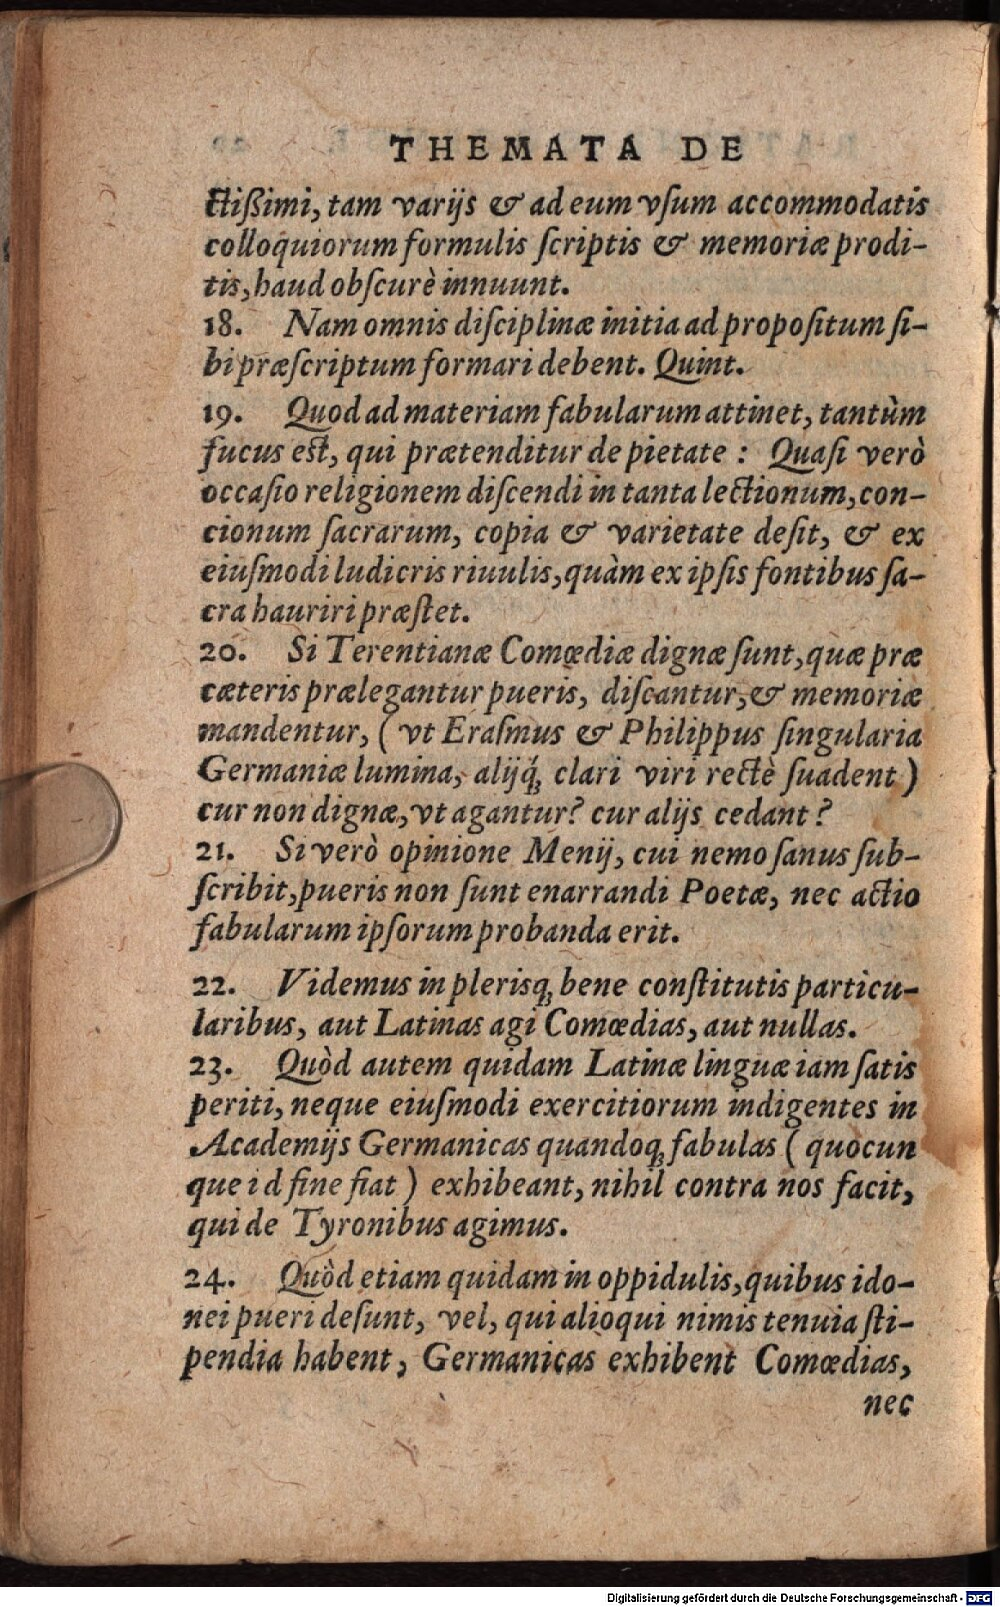 THEMATA DE
ctißimi, tam varijs & ad eum vſum accommodatis
colloquiorum formulis ſcriptis & memoriæ prodi-
tis, haud obſcurè innuunt.
18. Nam omnis diſciplinæ initia ad propoſitum ſi-
bi præſcriptum formari debent. Quint.
19. Quod ad materiam fabularum attinet, tantùm
fucus est, qui prætenditur de pietate : Quaſi verò
occaſio religionem diſcendi in tanta lectionum, con-
cionum ſacrarum, copia & varietate deſit, & ex
eiuſmodi ludicris riuulis, quàm ex ipſis fontibus ſa-
cra hauriri præſtet.
20. Si Terentianæ Comœdiæ dignæ ſunt, quæ præ
cæteris prælegantur pueris, diſcantur, & memoriæ
mandentur, ( vt Eraſmus & Philippus ſingularia
Germaniæ lumina, alijq́; clari viri rectè ſuadent )
cur non dignæ, vt agantur? cur alijs cedant?
21. Si verò opinione Menij, cui nemo ſanus ſub-
ſcribit, pueris non ſunt enarrandi Poetæ, nec actio
fabularum ipſorum probanda erit.
22. Videmus in plerisq; bene conſtitutis particu-
laribus, aut Latinas agi Comœdias, aut nullas.
23. Quòd autem quidam Latinæ linguæ iam ſatis
periti, neque eiuſmodi exercitiorum indigentes in
Academijs Germanicas quandoq; fabulas ( quocun
que id fine fiat ) exhibeant, nihil contra nos facit,
qui de Tyronibus agimus.
24. Quòd etiam quidam in oppidulis, quibus ido-
nei pueri deſunt, vel, qui alioqui nimis tenuia ſti-
pendia habent, Germanicas exhibent Comœdias,
nec
Digitalisierung gefördert durch die Deutsche Forschungsgemeinschaft - DFG